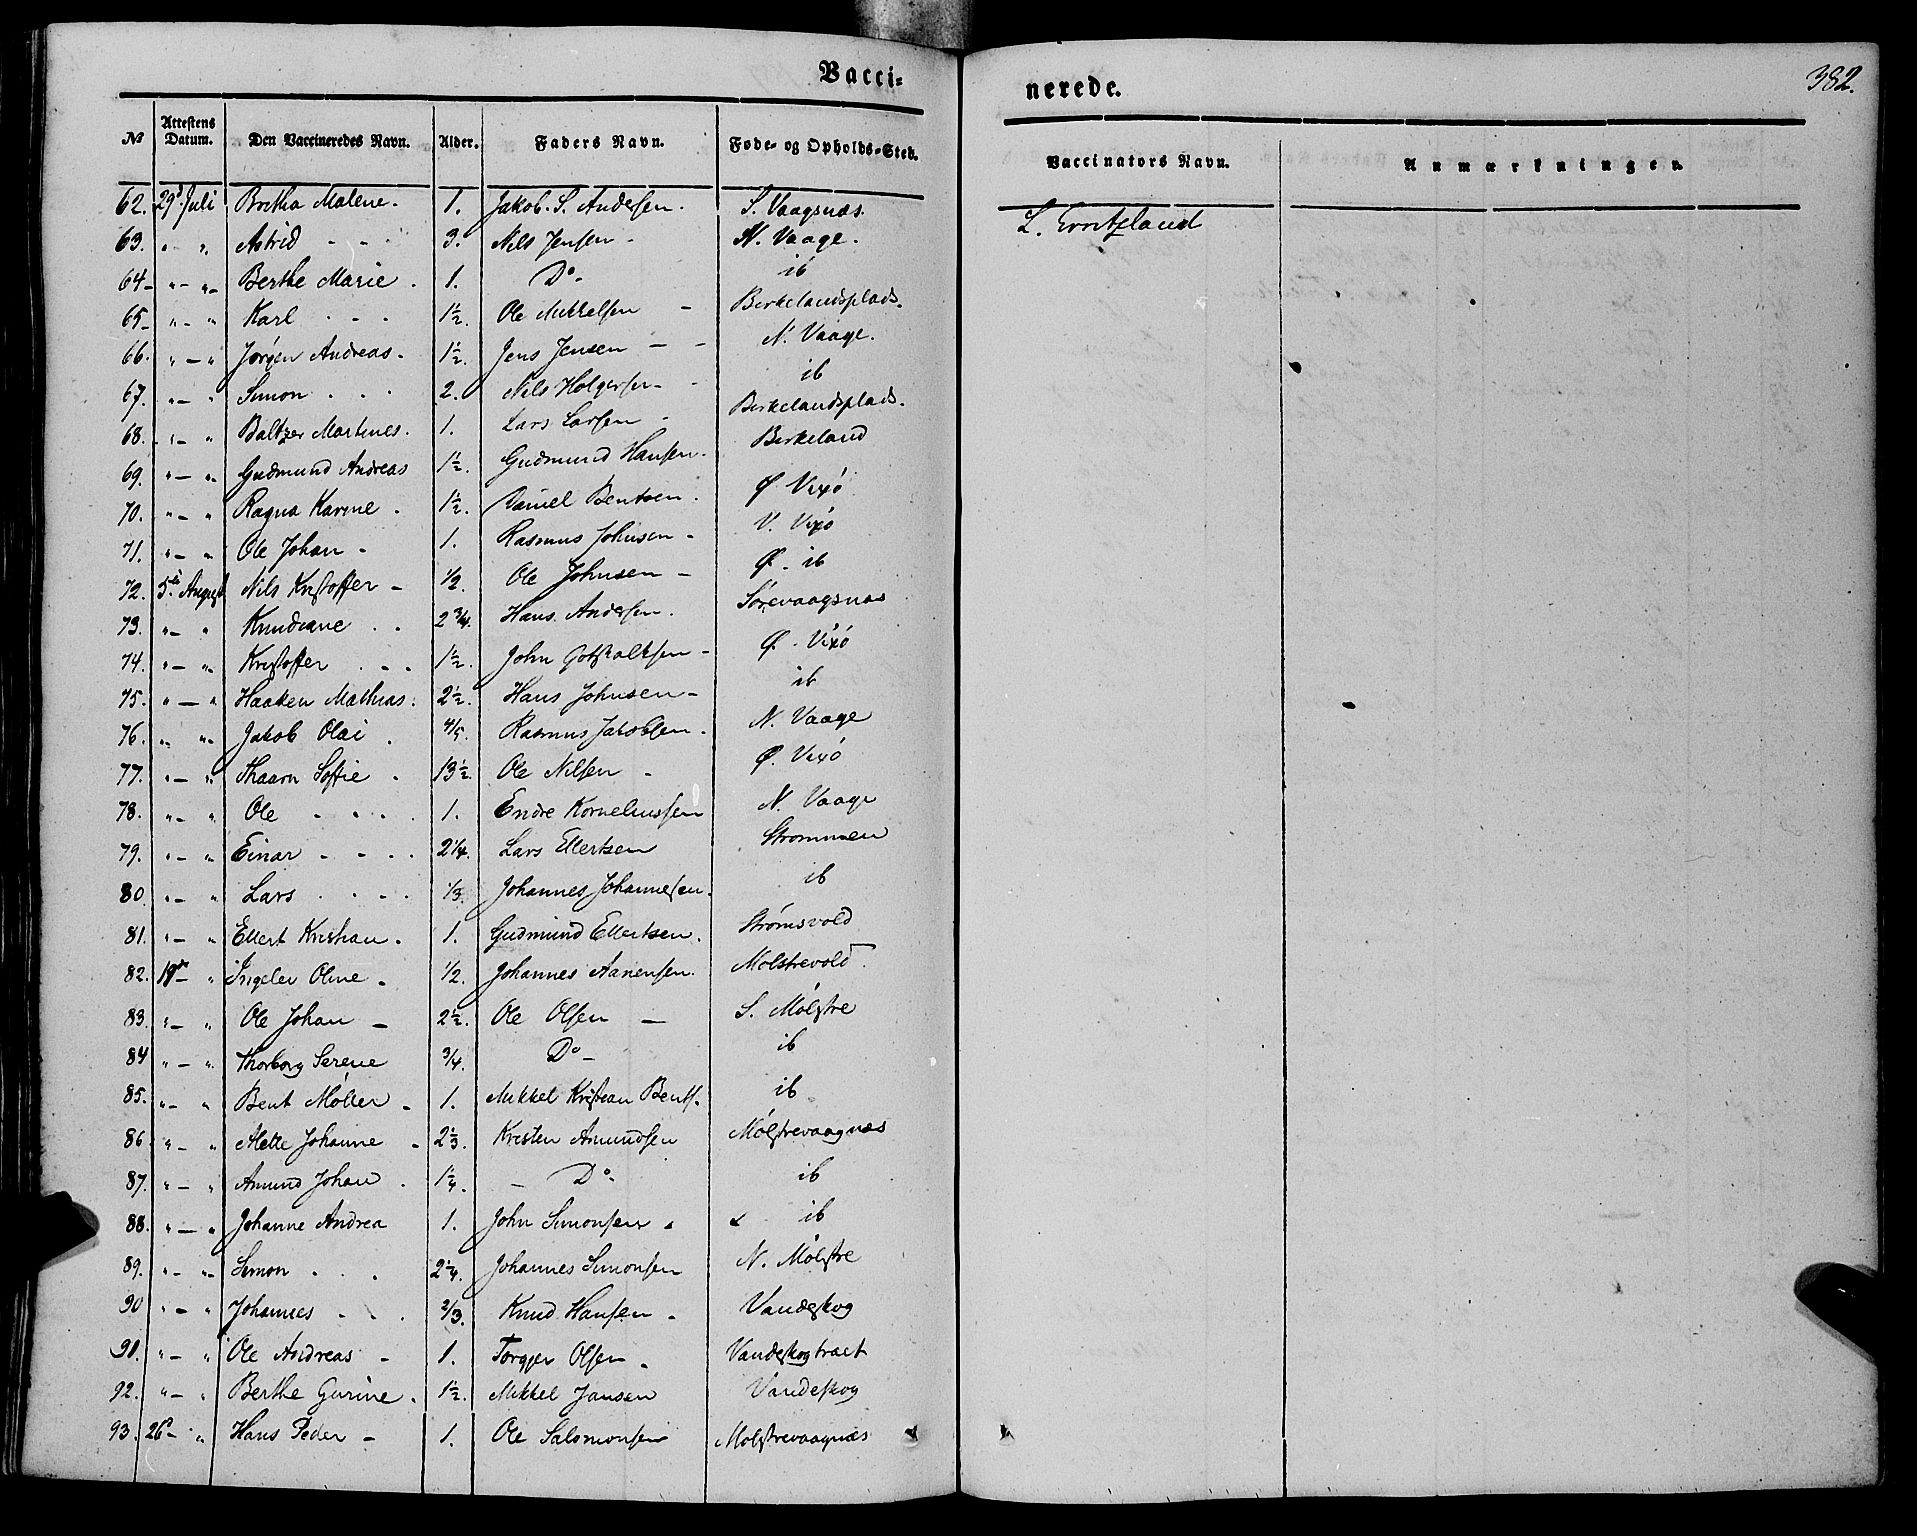 Vacci-
nerede.
382.
№ Attestens Datum. Den Vaccineredes Navn. Alder. Faders Navn. Føde- og Opholds-Sted. Vaccinators Navn. Anmærkninger.
62. 29d Juli Bretha Malene. 1. Jakob. S. Andersen. S. Vaagsnæs.
63. " " Astrid - - - 3. Nils Jensen - N. Vaage.
64 - " - " - Berthe Marie. 1. Do - ib
65 - " - " Karl - - - 1½. Ole Mikkelsen - Birkelandsplads.
66. " - " Jørgen Andreas. 1½. Jens Jensen - - N. Vaage.
67. " - " Simon . . . 2. Nils Holgersen - - ib
68. " - " Baltzer Martines. 1. Lars Larsen - Birkelandsplads.
69. " - " Gudmund Andreas 1½. Gudmund Hansen. Birkeland
70. " - " Ragna Karine. 1½. Daniel Bentsen. Ø Vixø
71. " - " Ole Johan - 1. Rasmus Johnsen - V. Vixø
72. 5te August Nils Kristoffer - 1/2. Ole Johnsen - Ø. ib
73. " - " Knudiane . . 2 3/4. Hans Andersen. Sørevaagsnæs
74. " - " Kristoffer . . . 1½. John Gotskalksen - Ø. Vixø
75. " - " Haaken Mathias. 2½. Hans Johnsen - ib
76. " " Jakob Olai . 4/5. Rasmus Jakobsen. N. Vaage
77. " - " Thaarn Sofie . 13½. Ole Nilsen - Ø. Vixø
78. " - " Ole . . . . 1. Endre Korneliussen N. Vaage
79. " - " Einar - - . . 2 1/4. Lars Ellertsen Strømmen
80. " - " Lars . . . . 1/3. Johannes Johannesen. ib
81. " - " Ellert Kristian. 1. Gudmund Ellertsen. Strømsvold
82. 19de - " Ingelev Oline - 1/2. Johannes Aanensen. Mølstrevold.
83. " - " Ole Johan - 2½. Ole Olsen - S. Mølstre
84 " - " Thorborg Serene 3/4. Do - ib
85. " - " Bent Møller - 1. Mikkel Kristian Bents. ib
86. " - " Mette Johanne - 2⅓. Kristen Amundsen Mølstrevaagnæs
87. " - " Amund Johan . 1¼. - Do - ib
88. " - " Johanne Andrea 1. John Simonsen. ib
89. " - " Simon . . . 2¼. Johannes Simonsen N. Mølstre
90 " - " Johannes . . . 2/3. Knud Hansen - Vandeskog
91. " - " Ole Andreas - 1. Torger Olsen - Vandeskogtract
92. " - " Berthe Gurine. 1½. Mikkel Jansen Vandeskog
93. 26d - " Hans Peder - 1. Ole Salomonsen Mølstrevaagnæs